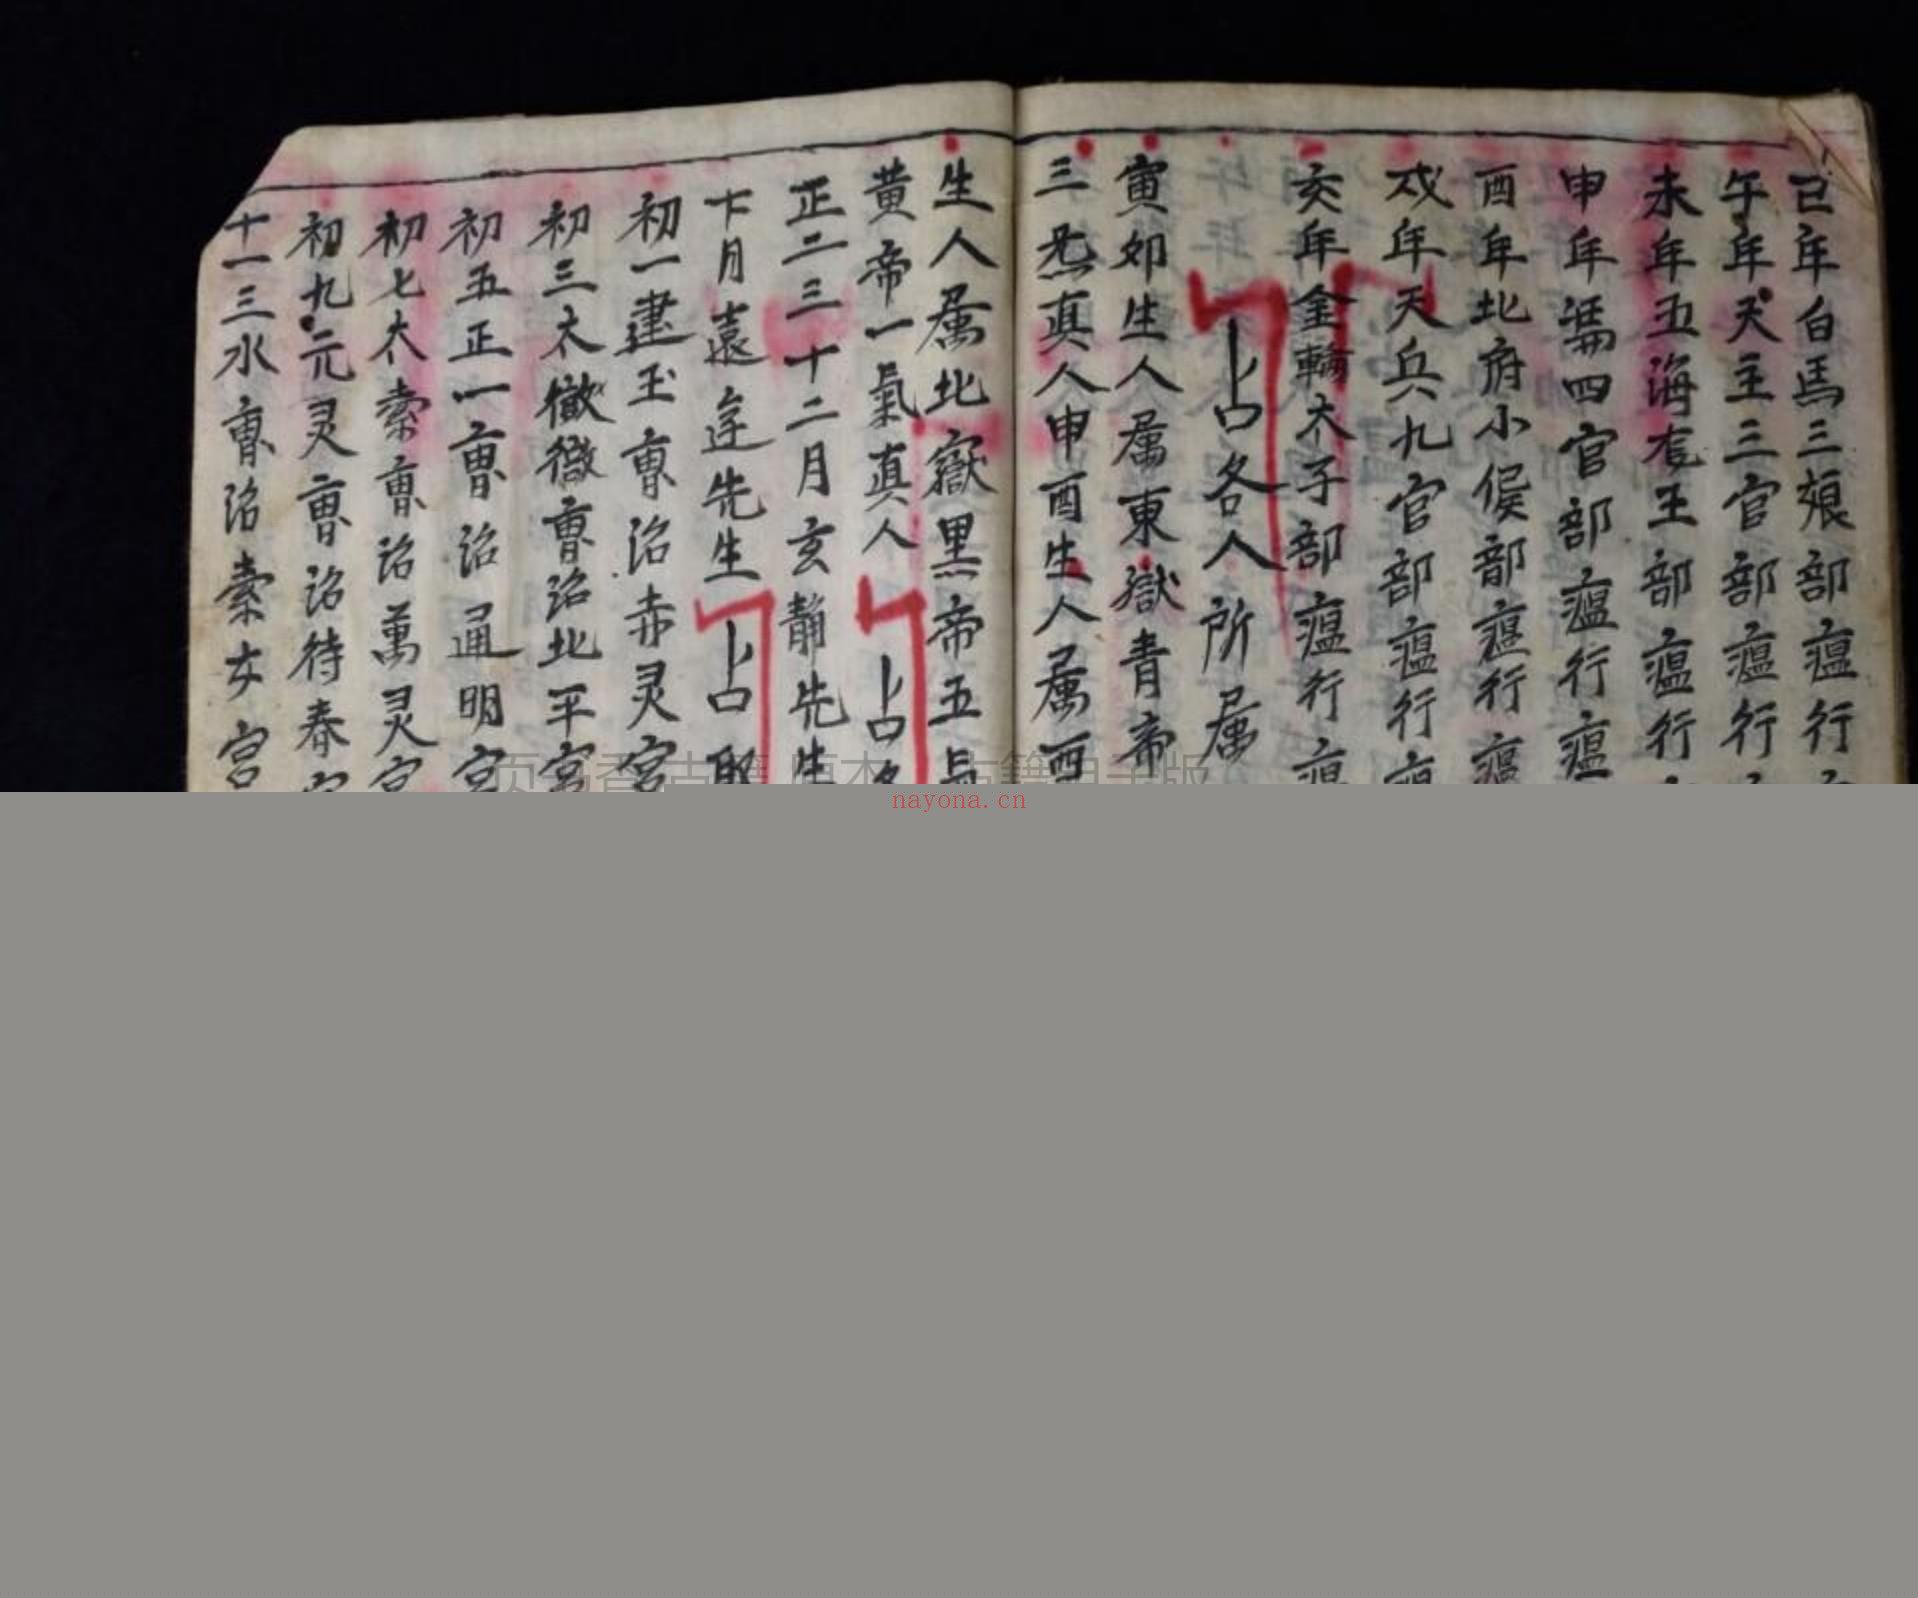 巳年白馬三娘部瘟行
午年天主三官部瘟行
未年五海龙王部瘟行
申年馮四官部瘟行瘟
酉年北府小侯部瘟行瘟
戌年天兵九官部瘟行
亥年金輪太子部瘟行
占各人所属
寅卯生人属東嶽青帝
三炁真人申酉生人属西
生人属北嶽黒帝五
黄帝一氣真人 占
正二三十二月玄静先生
十月遠逹先生 占
初一建玉曺治赤灵宮
初三太徽曺治北平宮
初五正一曺治通明宮
初七太素曺治萬灵宮
初九元灵曺治待春
十一三水曺治素女宮
nayona.cn